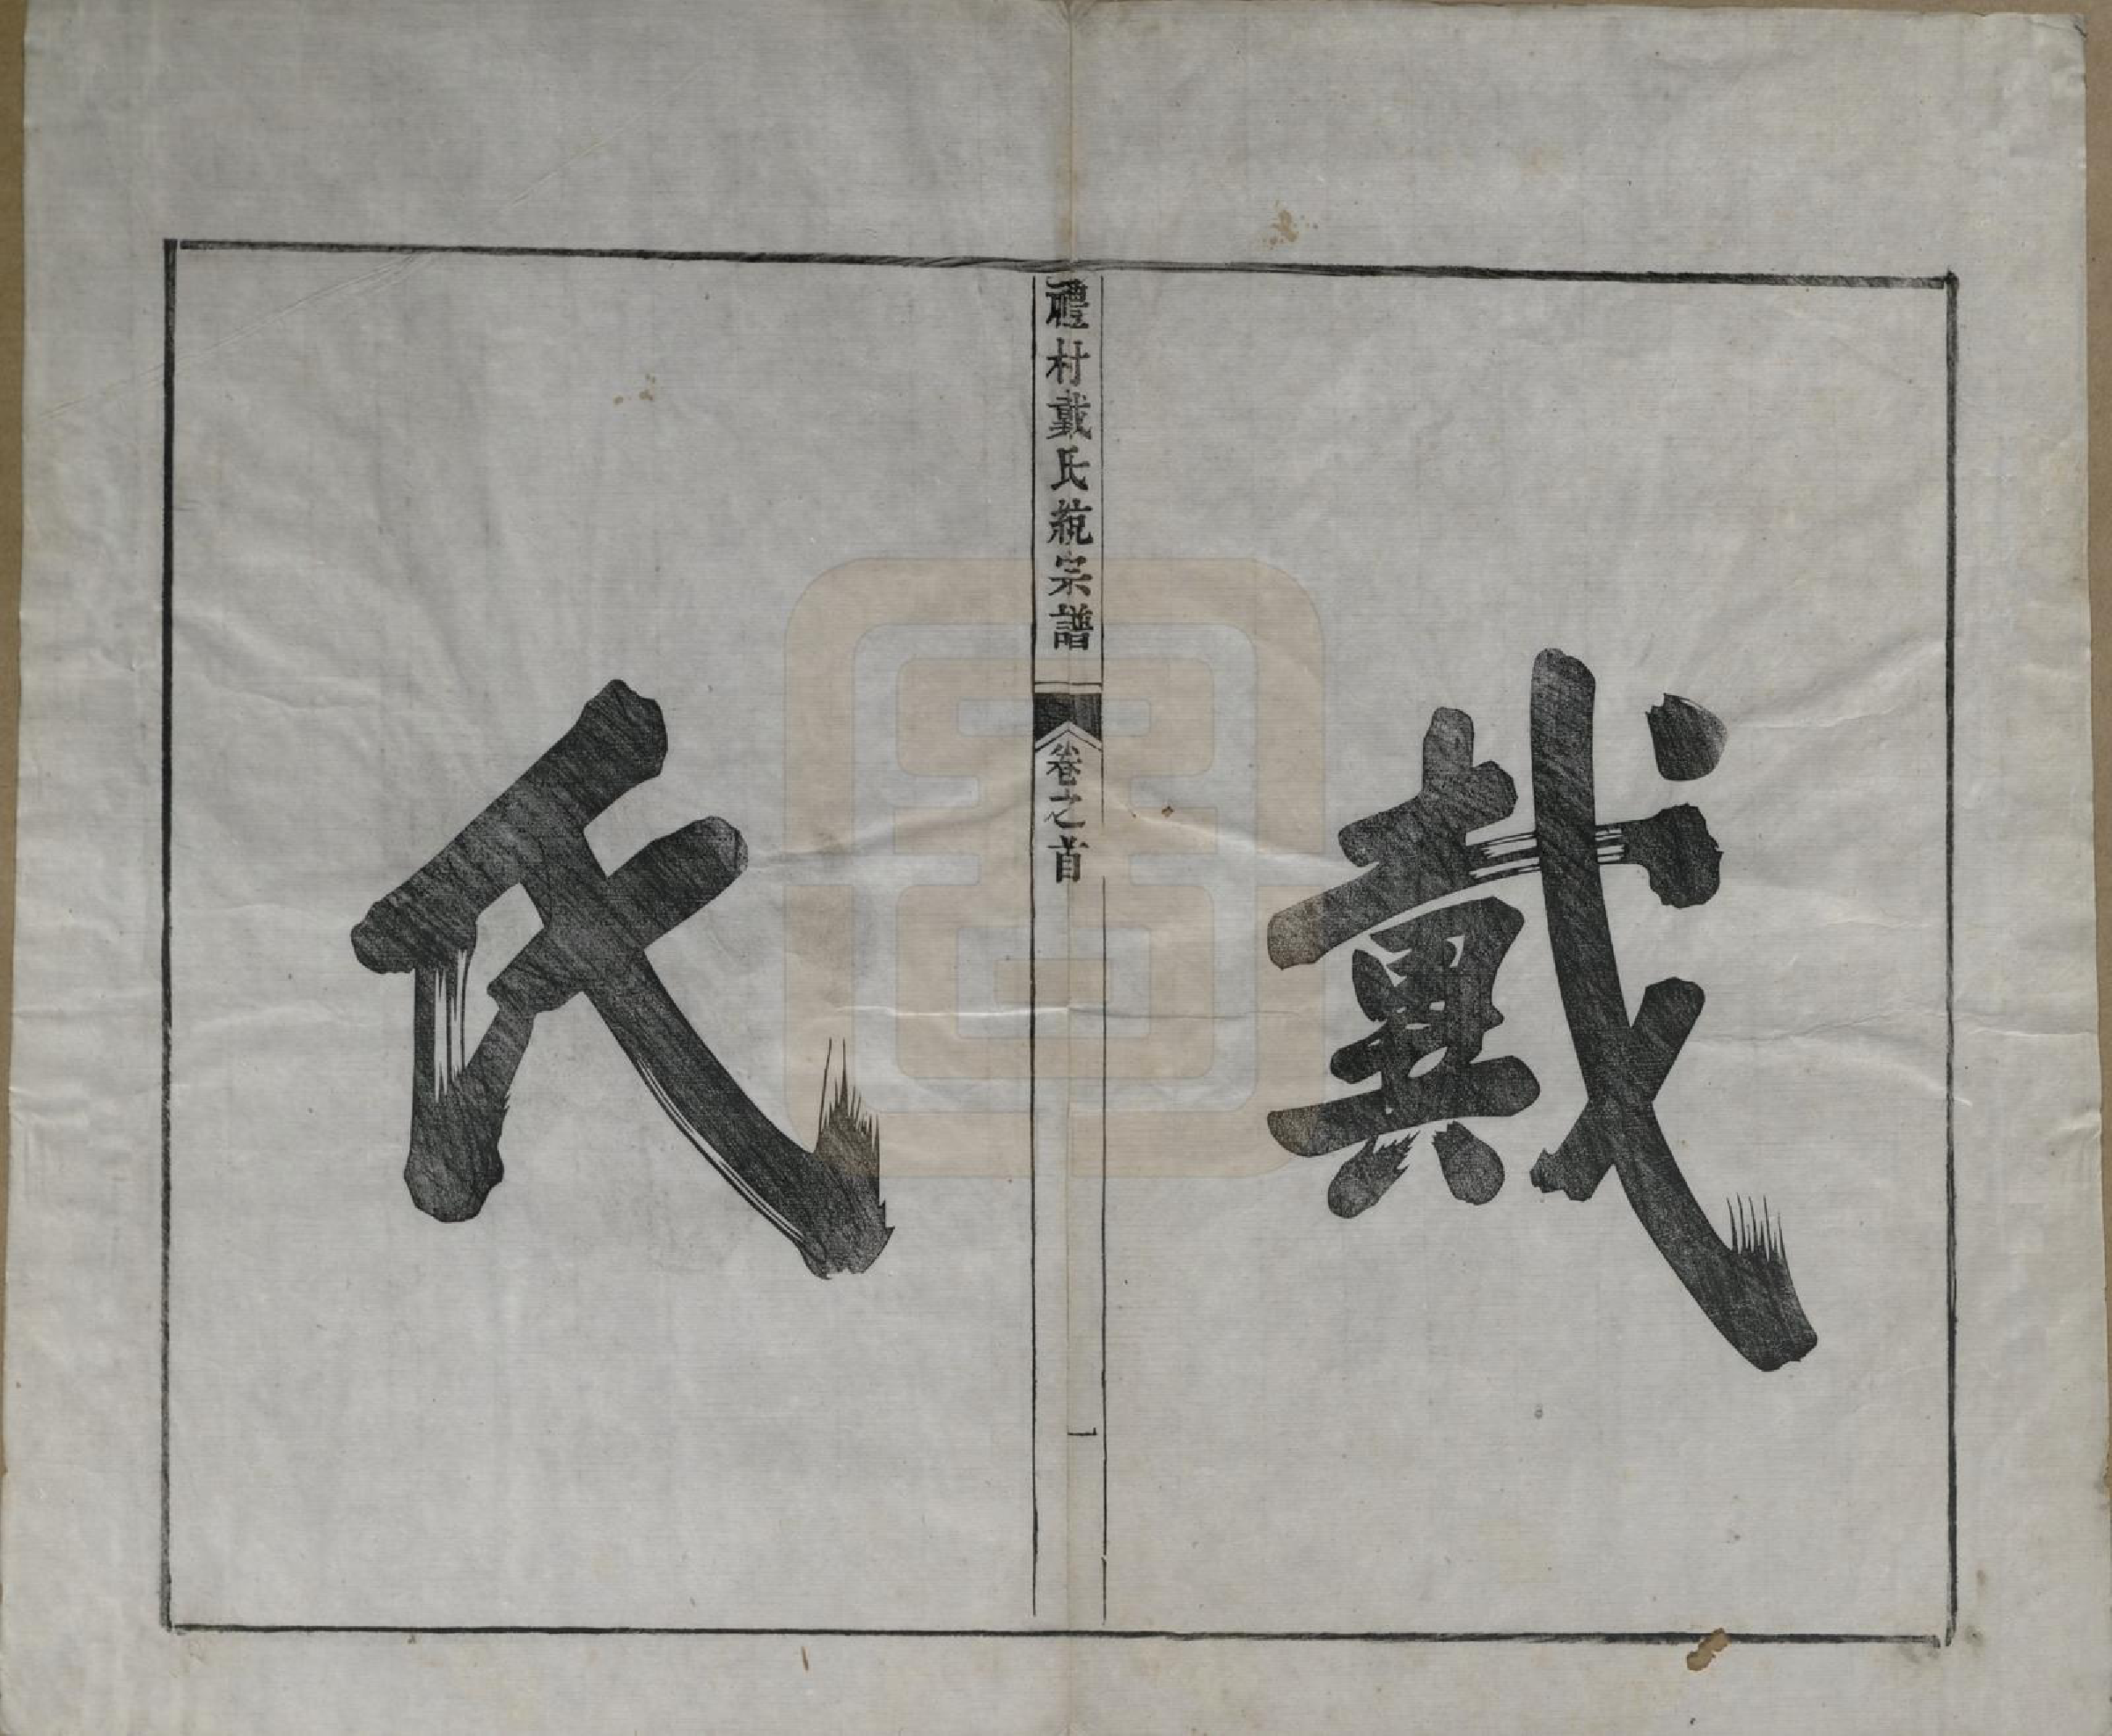 戴
禮村戴氏統宗譜
卷之首
一
氏